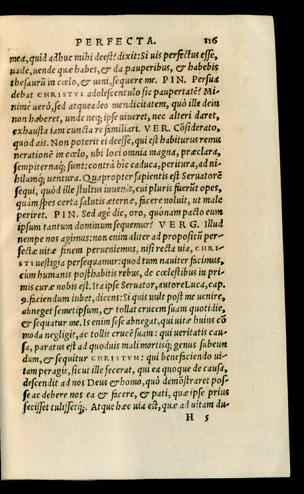 PERFECTA. 116
mea, quid adhuc mihi deest? dixit: Si uis perfectus esse,
uade, uende quæ habes, & da pauperibus, & habebis
thesaurū in cœlo, & ueni, sequere me. PIN. Persua
debat CHRISTVS adolescentulo sic paupertatē? Mi-
nimè uerò, sed atque adeo mendicitatem, quò ille dein
non haberet, unde neq; ipse uiueret, nec alteri daret,
exhausta iam cuncta re familiari. VER. Cōsiderato,
quod ais. Non poterit ei deesse, qui est habiturus remu
nerationē in cœlo, ubi loci omnia magna, præclara,
sempiternaq; sunt: contrà hîc caduca, peritura, ad ni-
hilumq; uentura. Quapropter sapientis est Seruatorē
sequi, quòd ille stultus iuuenis, cui pluris fuerūt opes,
quàm spes certa salutis æternæ, facere noluit, ut male
periret. PIN. Sed age dic, oro, quónam pacto eum
ipsum tantum dominum sequemur? VERG. Illud
nempe nos agimus: non enim aliter ad propositū per-
fectæ uitæ finem perueniemus, nisi recta uia, CHRI-
STI uestigia persequamur: quod tum nauiter facimus,
cùm humanis posthabitis rebus, de cœlestibus in pri-
mis curæ nobis est. Ita ipse Seruator, autore Luca, cap.
9. faciendum iubet, dicens: Si quis uult post me uenire,
abneget semetipsum, & tollat crucem suam quotidie,
& sequatur me. Is enim sese abnegat, qui uitæ huius cō
moda negligit, ac tollit crucē suam: qui ueritatis cau-
sa, paratus est ad quoduis mali mortisq; genus subeun
dum, & sequitur CHRISTVM: qui benefaciendo ui-
tam peragit, sicut ille fecerat, qui ea quoque de causa,
descendit ad nos Deus & homo, quò demōstraret pos-
se ac debere nos ea & facere, & pati, quæ ipse prius
fecisset tulissetq;. Atque hæc uia est, quæ ad uitam du-
H 5